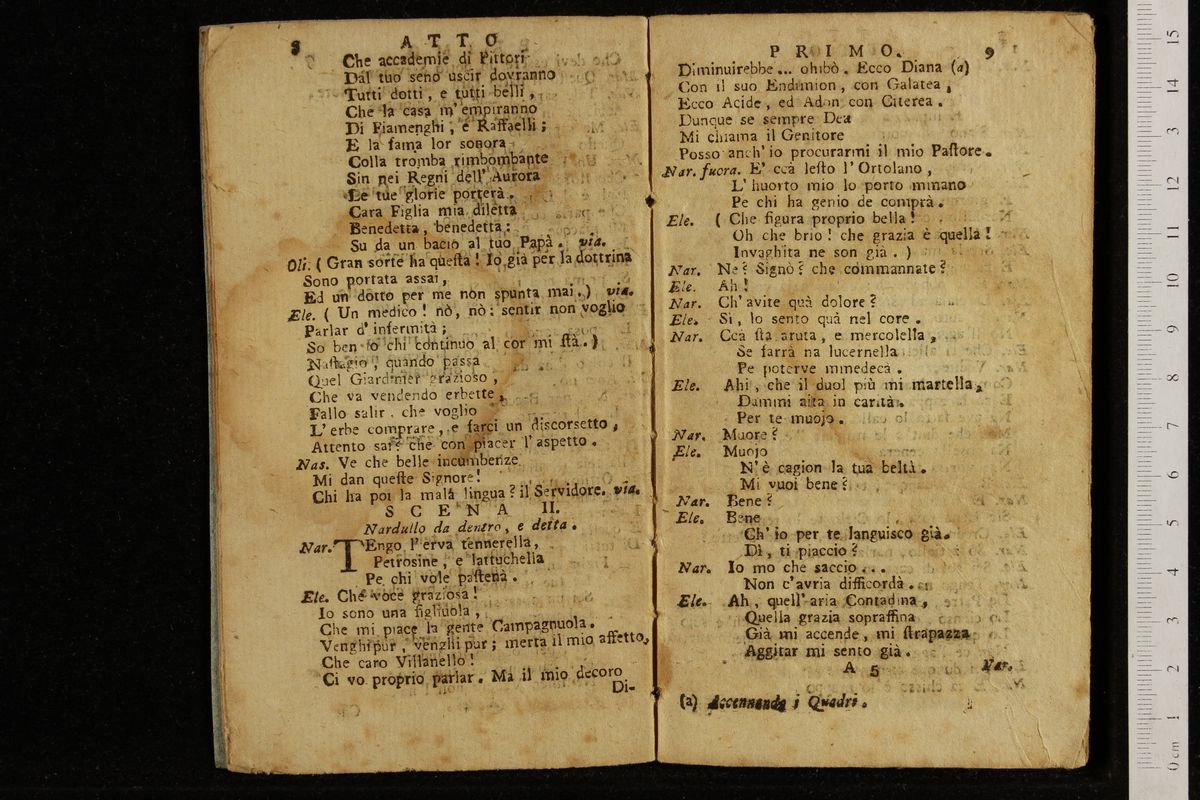 8 ATTO
Che accademie di Pittori
Dal tuo seno uscir dovranno
Tutti dotti, e tutti belli,
Che la casa m'empiranno
Di Fiamenghi, e Raffaelli;
E la fama lor sonora
Colla tromba rimbombante
Sin nei Regni dell'Aurora
Le tue glorie porterà.
Cara Figlia mia diletta
Benedetta, benedetta:
Su da un bacio al tuo Papà. via.
Oli. (Gran sorte ha queſta! Io già per la dottrina
Sono portata assai,
Ed un dotto per me non spunta mai.) via.
Ele. (Un medico! nò, nò: sentir non voglio
Parlar d'infermità;
So ben io chi continuo al cor mi ſtà.)
Naſtagio, quando passa
Quel Giardinier grazioso,
Che va vendendo erbette,
Fallo salir, che voglio
L'erbe comprare, e farci un discorsetto,
Attento sai? che con piacer l'aspetto.
Nas. Ve che belle incumbenze
Mi dan queſte Signore!
Chi ha poi la mala lingua? il Servidore. via.
SCENA II.
Nardullo da dentro, e detta.
Nar. TEngo l'erva tennerella,
Petrosine, e lattuchella
Pe chi vole paſtenà.
Ele. Che voce graziosa!
Io sono una figliuola,
Che mi piace la gente Campagnuola.
Venghi pur, venghi pur; merta il mio affetto,
Che caro Villanello!
Ci vo proprio parlar. Ma il mio decoro
Di-
PRIMO. 9
Diminuirebbe... ohibò. Ecco Diana (a)
Con il suo Endimion, con Galatea,
Ecco Acide, ed Adon con Citerea.
Dunque se sempre Dea
Mi chiama il Genitore
Posso anch'io procurarmi il mio Paſtore.
Nar. fuora. E' ccà leſto l'Ortolano,
L'huorto mio lo porto mmano
Pe chi ha genio de comprà.
Ele. (Che figura proprio bella!
Oh che brio! che grazia è quella!
Invaghita ne son già.)
Nar. Ne? Signò? che commannate?
Ele. Ah!
Nar. Ch'avite quà dolore?
Ele. Sì, lo sento quà nel core.
Nar. Ccà ſta aruta, e mercolella,
Se farrà na lucernella
Pe poterve mmedecà.
Ele. Ahi, che il duol più mi martella,
Dammi aita in carità.
Per te muojo.
Nar. Muore?
Ele. Muojo
N'è cagion la tua beltà.
Mi vuoi bene?
Nar. Bene?
Ele. Bene
Ch'io per te languisco già.
Dì, ti piaccio?
Nar. Io mo che saccio...
Non c'avria difficordà.
Ele. Ah, quell'aria Contadina,
Quella grazia sopraffina
Già mi accende, mi ſtrapazza
Aggitar mi sento già.
A 5 Nar.
(a) Accennando i Quadri.